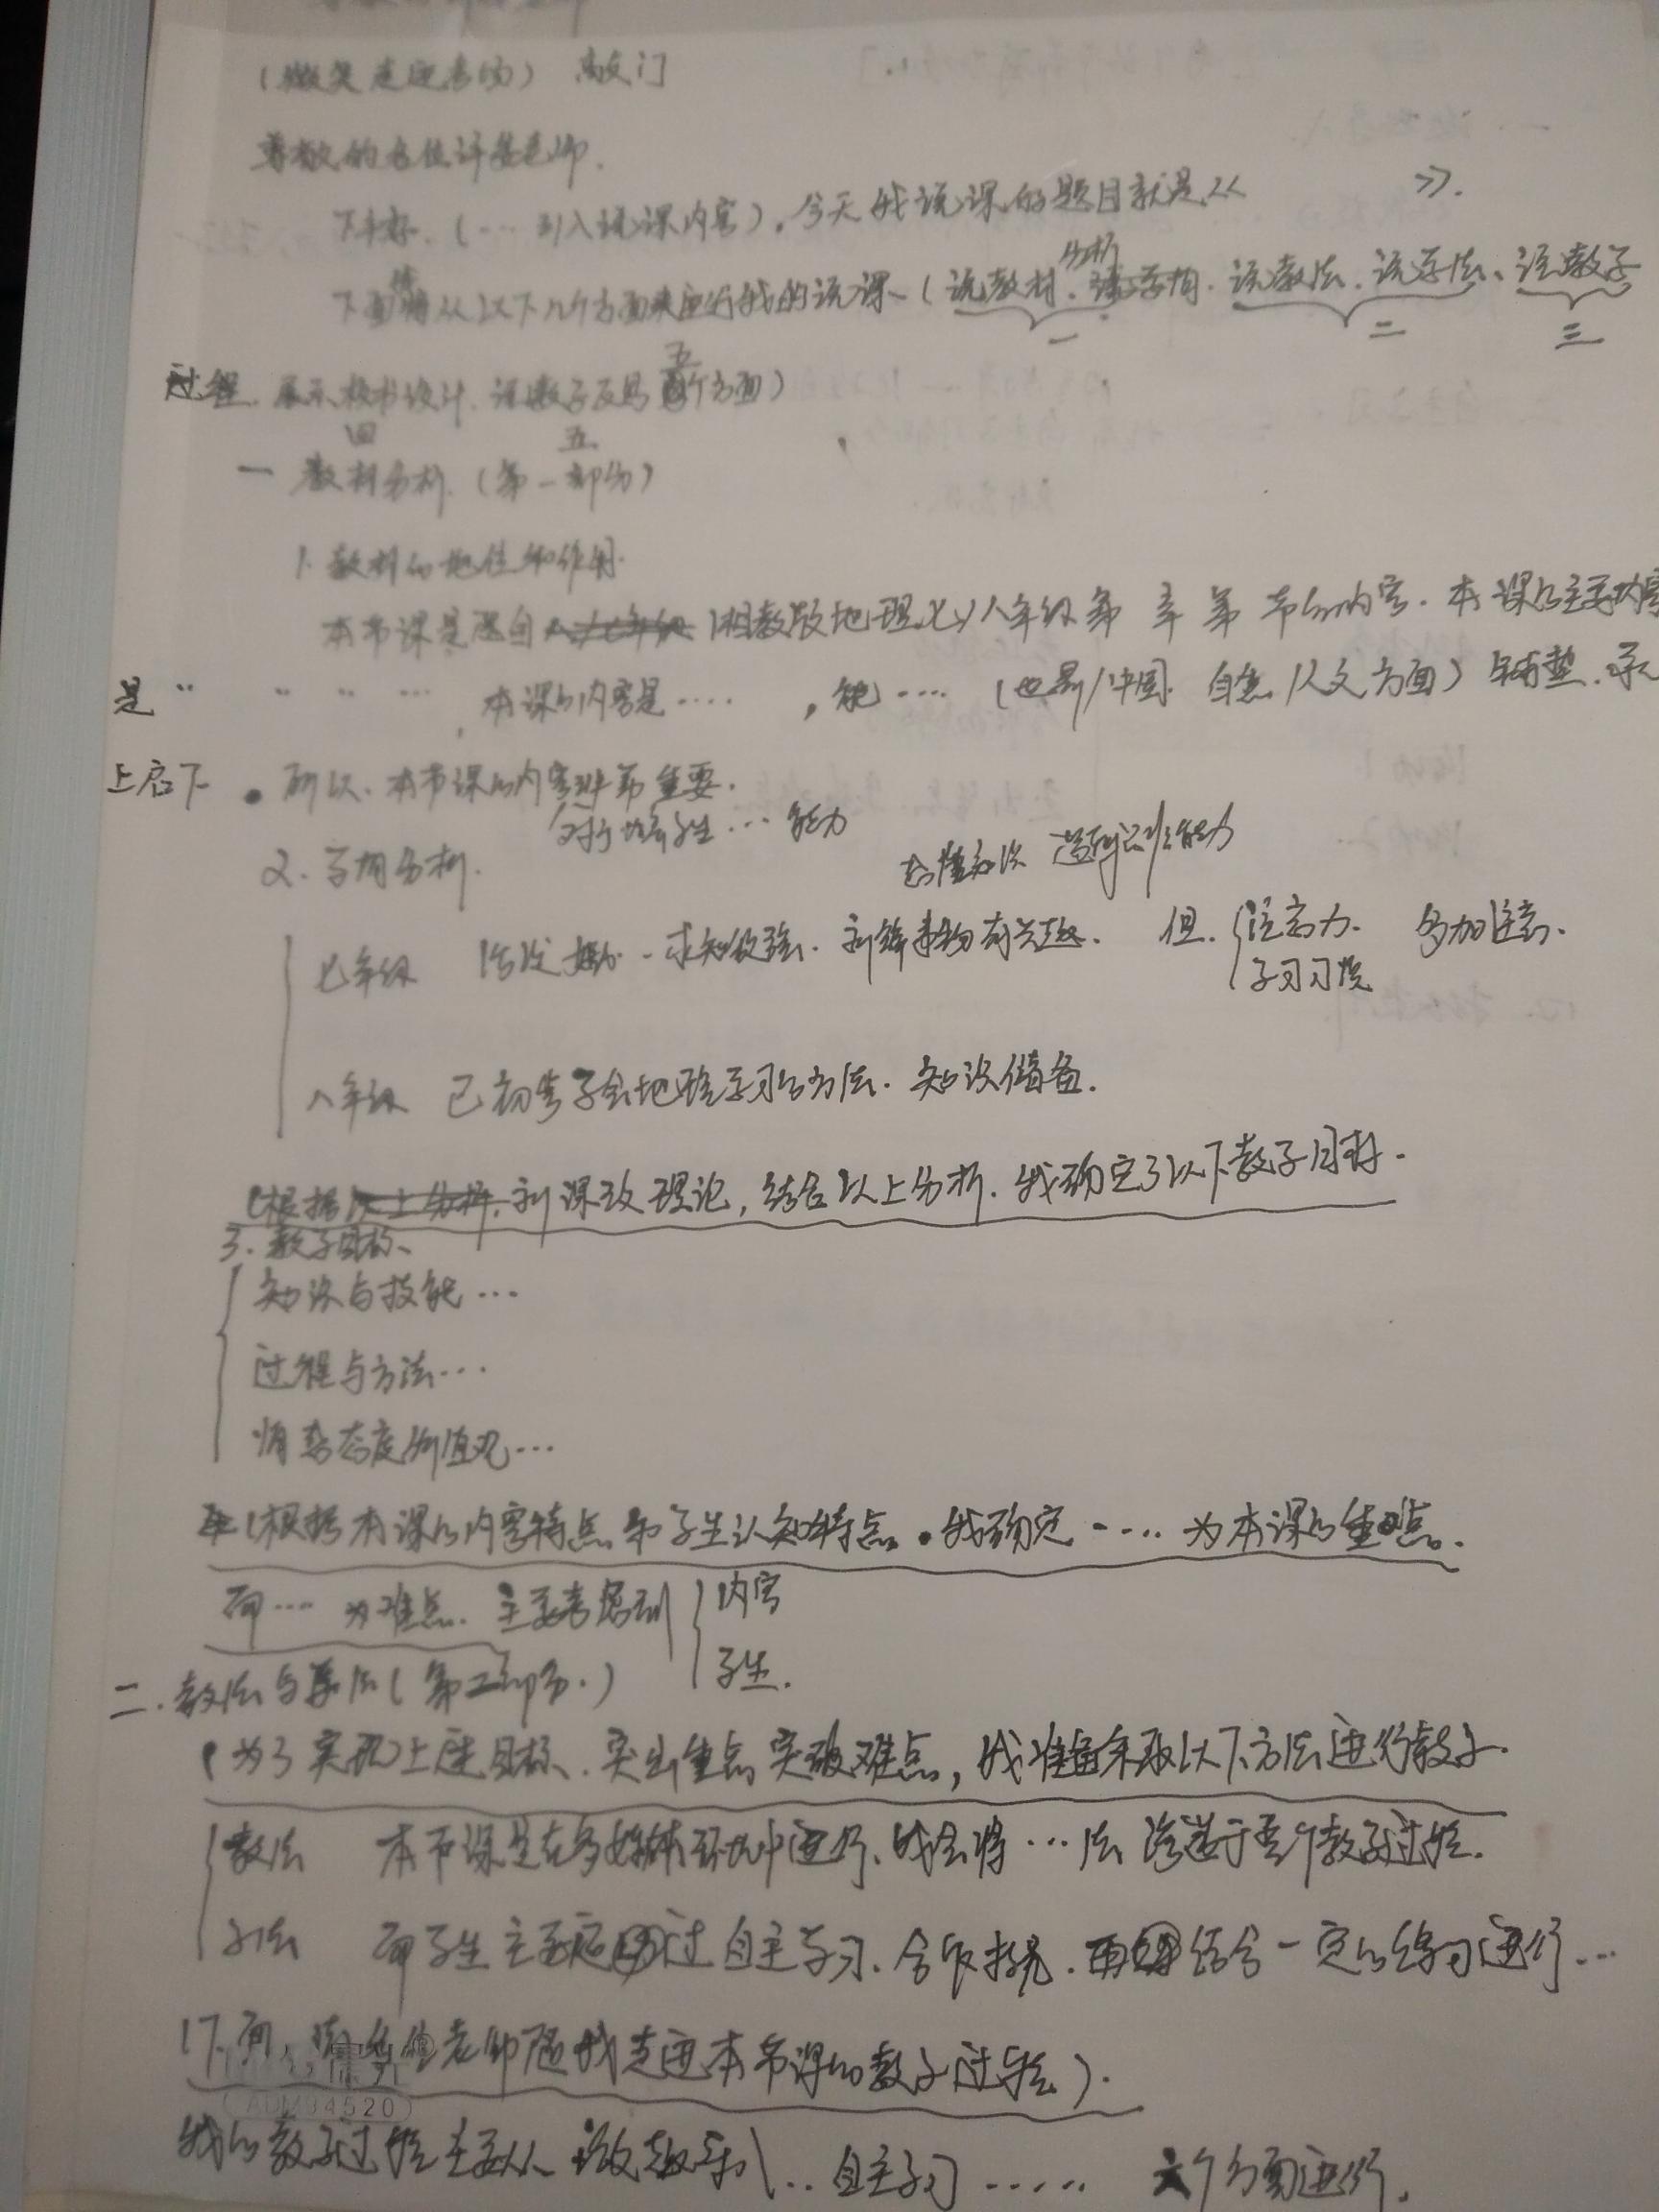 (微笑走进考场) 敲门
尊敬的各位评委老师.
下午好.(…引入说课内容),今天我说课的题目就是《 》.
下面将从以下几个方面来进行我的说课、(说教材. 分析学情. 说教法. 说学法、说教学
一 二 三
过程. 展示板书设计. 说教学反思 五个方面)
四 五
一 教材分析.(第一部分)
1. 教材的地位和作用.
本节课是选自 湘教版地理七/八年级第 章 第 节的内容. 本课的主要内容
是…… ,本课的内容是…… ,能…… (世界/中国. 自然/人文方面) 铺垫.承
上启下. 所以、本节课的内容非常重要.
对于培养学生…能力
2. 学情分析.
七年级 活泼好动、求知欲强. 新鲜事物有兴趣. 但. 注意力. 多加注意.
学习习惯
八年级 已初步学会地理学习的方法. 知识储备.
(根据新课改理论,结合以上分析. 我确定了以下教学目标.
3. 教学目标、
知识与技能…
过程与方法…
情感态度价值观…
(根据本课的内容特点和学生认知特点. 我确定…. 为本课的重点.
而… 为难点. 主要考虑到 内容
学生.
二. 教法与学法(第二部分.)
(为了实现上述目标、突出重点 突破难点,我准备采取以下方法进行教学.
教法 本节课是在多媒体环境中进行、我会将…法 渗透于整个教学过程.
学法 而学生主要通过自主学习. 合作探究. 再结合一定的练习进行…
(下面,请各位老师随我走进本节课的教学过程).
我的教学过程主要从 激趣导入… 自主学习…… 六个方面进行.